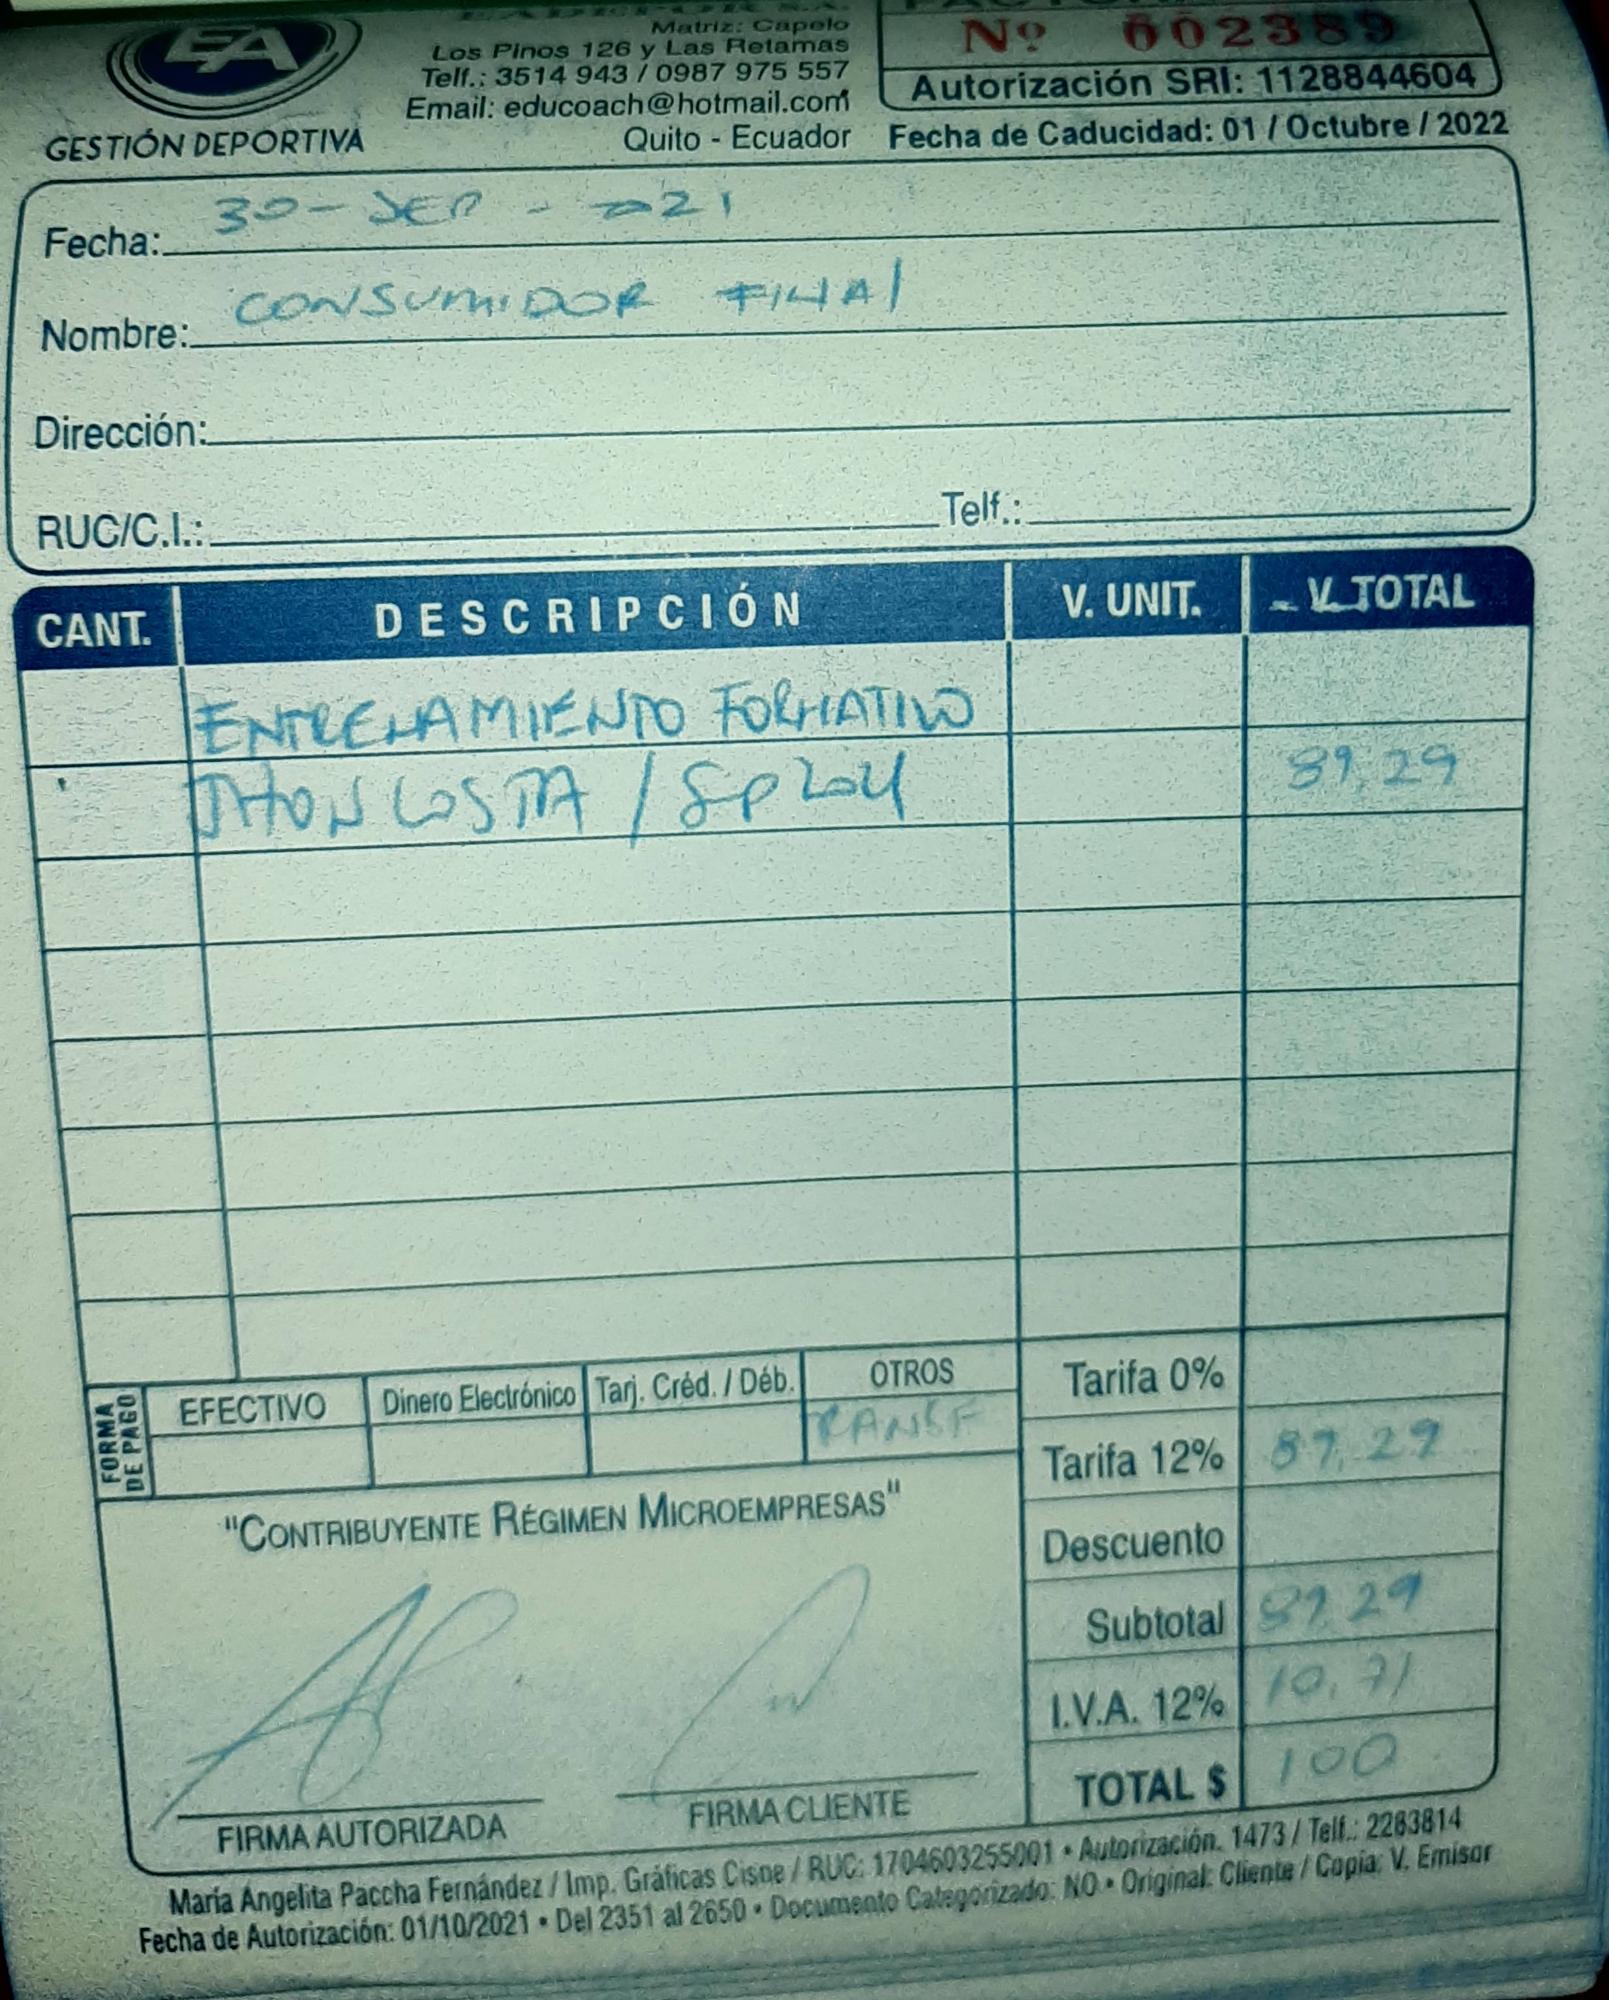 EA
GESTIÓN DEPORTIVA
Matriz: Capelo
Los Pinos 126 y Las Retamas
Telf.: 3514 943 / 0987 975 557
Email: educoach@hotmail.com
Quito - Ecuador
Nº 002389
Autorización SRI: 1128844604
Fecha de Caducidad: 01 / Octubre / 2022
Fecha: 30-SEP-2021
Nombre: CONSUMIDOR FINAL
Dirección:
RUC/C.I.: Telf.:
CANT. DESCRIPCIÓN V. UNIT. V. TOTAL
ENTRENAMIENTO FORMATIVO
/ 89,29
FORMA DE PAGO
EFECTIVO Dinero Electrónico Tarj. Créd. / Déb. OTROS
TRANSF
Tarifa 0%
Tarifa 12% 89,29
Descuento
Subtotal 89,29
I.V.A. 12% 10,71
TOTAL $ 100
"CONTRIBUYENTE RÉGIMEN MICROEMPRESAS"
FIRMA AUTORIZADA FIRMA CLIENTE
María Angelita Paccha Fernández / Imp. Gráficas Cisne / RUC: 1704603255001 • Autorización. 1473 / Telf.: 2283814
Fecha de Autorización: 01/10/2021 • Del 2351 al 2650 • Documento Categorizado: NO • Original: Cliente / Copia: V. Emisor